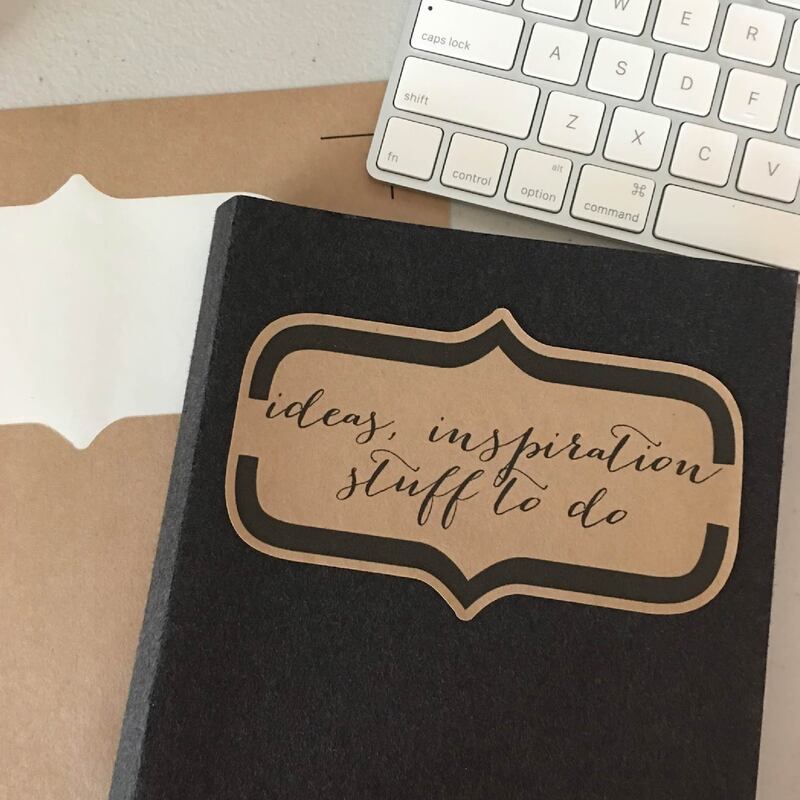 W E R
caps lock A S D F
shift Z X C V
fn control alt option ⌘ command
ideas, inspiration
stuff to do